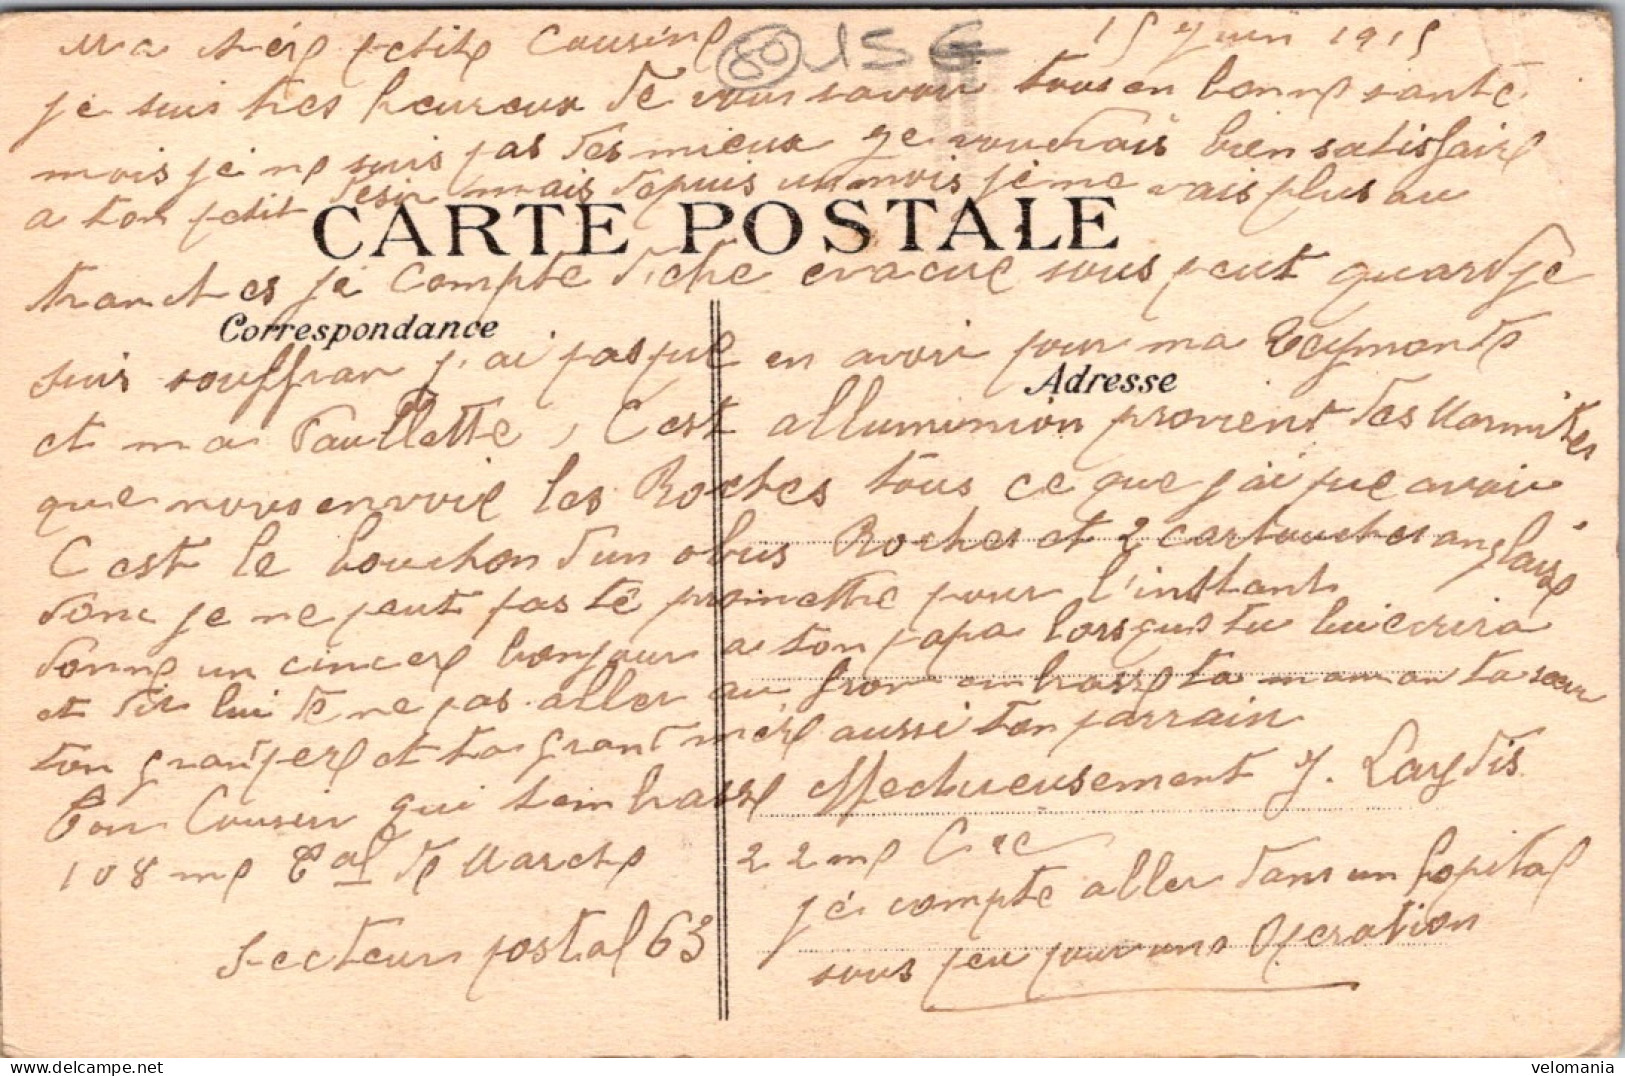 Ma chère petite Cousine 15 Juin 1915
80 ISG
je suis tres heureux de vous savoir tous en bonne santé
mois je ne suis pas des mieux je voudrais bien satisfaire
a ton petit desir mais depuis un mois je ne vais plus au
CARTE POSTALE
tranches je compte d'etre evacué sous peut quard je
Correspondance
suis souffran j'ai pas pue en avoir pour ma Reymonde
Adresse
et ma Paullette, C'est allumunion provient des Marmites
que nous envoie les Boches tous ce que j'ai pue avoir
C'est le bouchon d'un obus Boches et 2 cartouches anglaise
donc je ne peut pas te promettre pour l'instant
donne un cincere bonjour a ton papa lorsque tu lui ecrira
et dit lui de ne pas aller au fron embrasse ta maman ta sœur
ton granpere et ta grant mere aussi ton parrain
Ton Cousin qui t'embrasse affectueusement J. Laydis
108 me Bal de Marche 22 me Cie
je compte aller dans un hopital
Secteur postal 63
sous peu pour une Operation
velomania